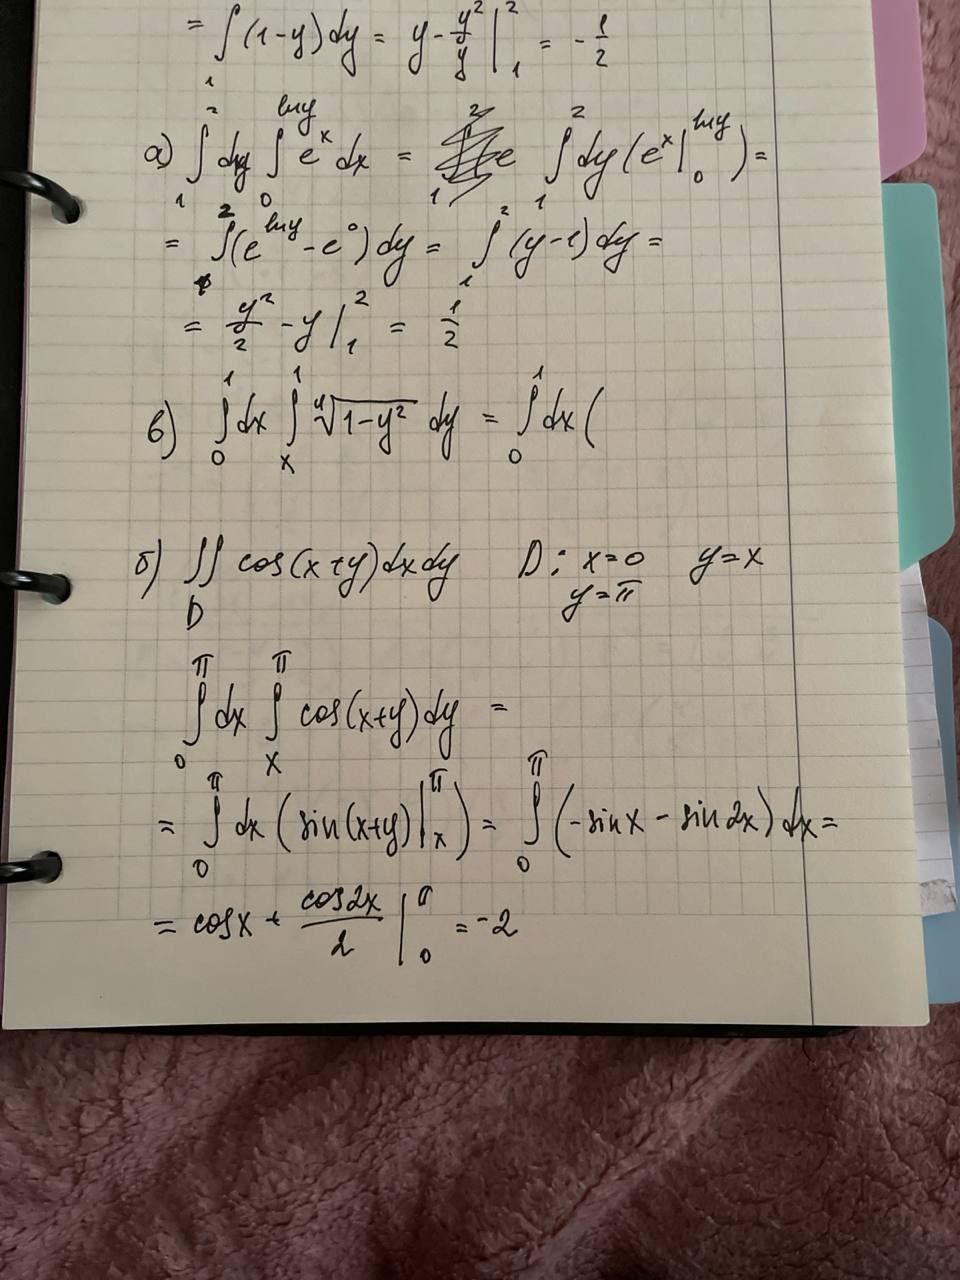 = ∫₁² (1-y)dy = y - y²/y |₁² = - 1/2
а) ∫₁² dy ∫₀^{ln y} eˣ dx = e ∫₁² dy (eˣ |₀^{ln y}) =
= ∫₁² (e^{ln y} - e⁰) dy = ∫₁² (y-1) dy =
= y²/2 - y |₁² = 1/2
в) ∫₀¹ dx ∫ₓ¹ ⁴√(1-y²) dy = ∫₀¹ dx (
б) ∬_D cos(x+y)dxdy D: x=0 y=x
y=π
∫₀^π dx ∫ₓ^π cos(x+y)dy =
= ∫₀^π dx (sin(x+y) |ₓ^π) = ∫₀^π (-sinx - sin2x) dx =
= cosx + cos2x/2 |₀^π = -2